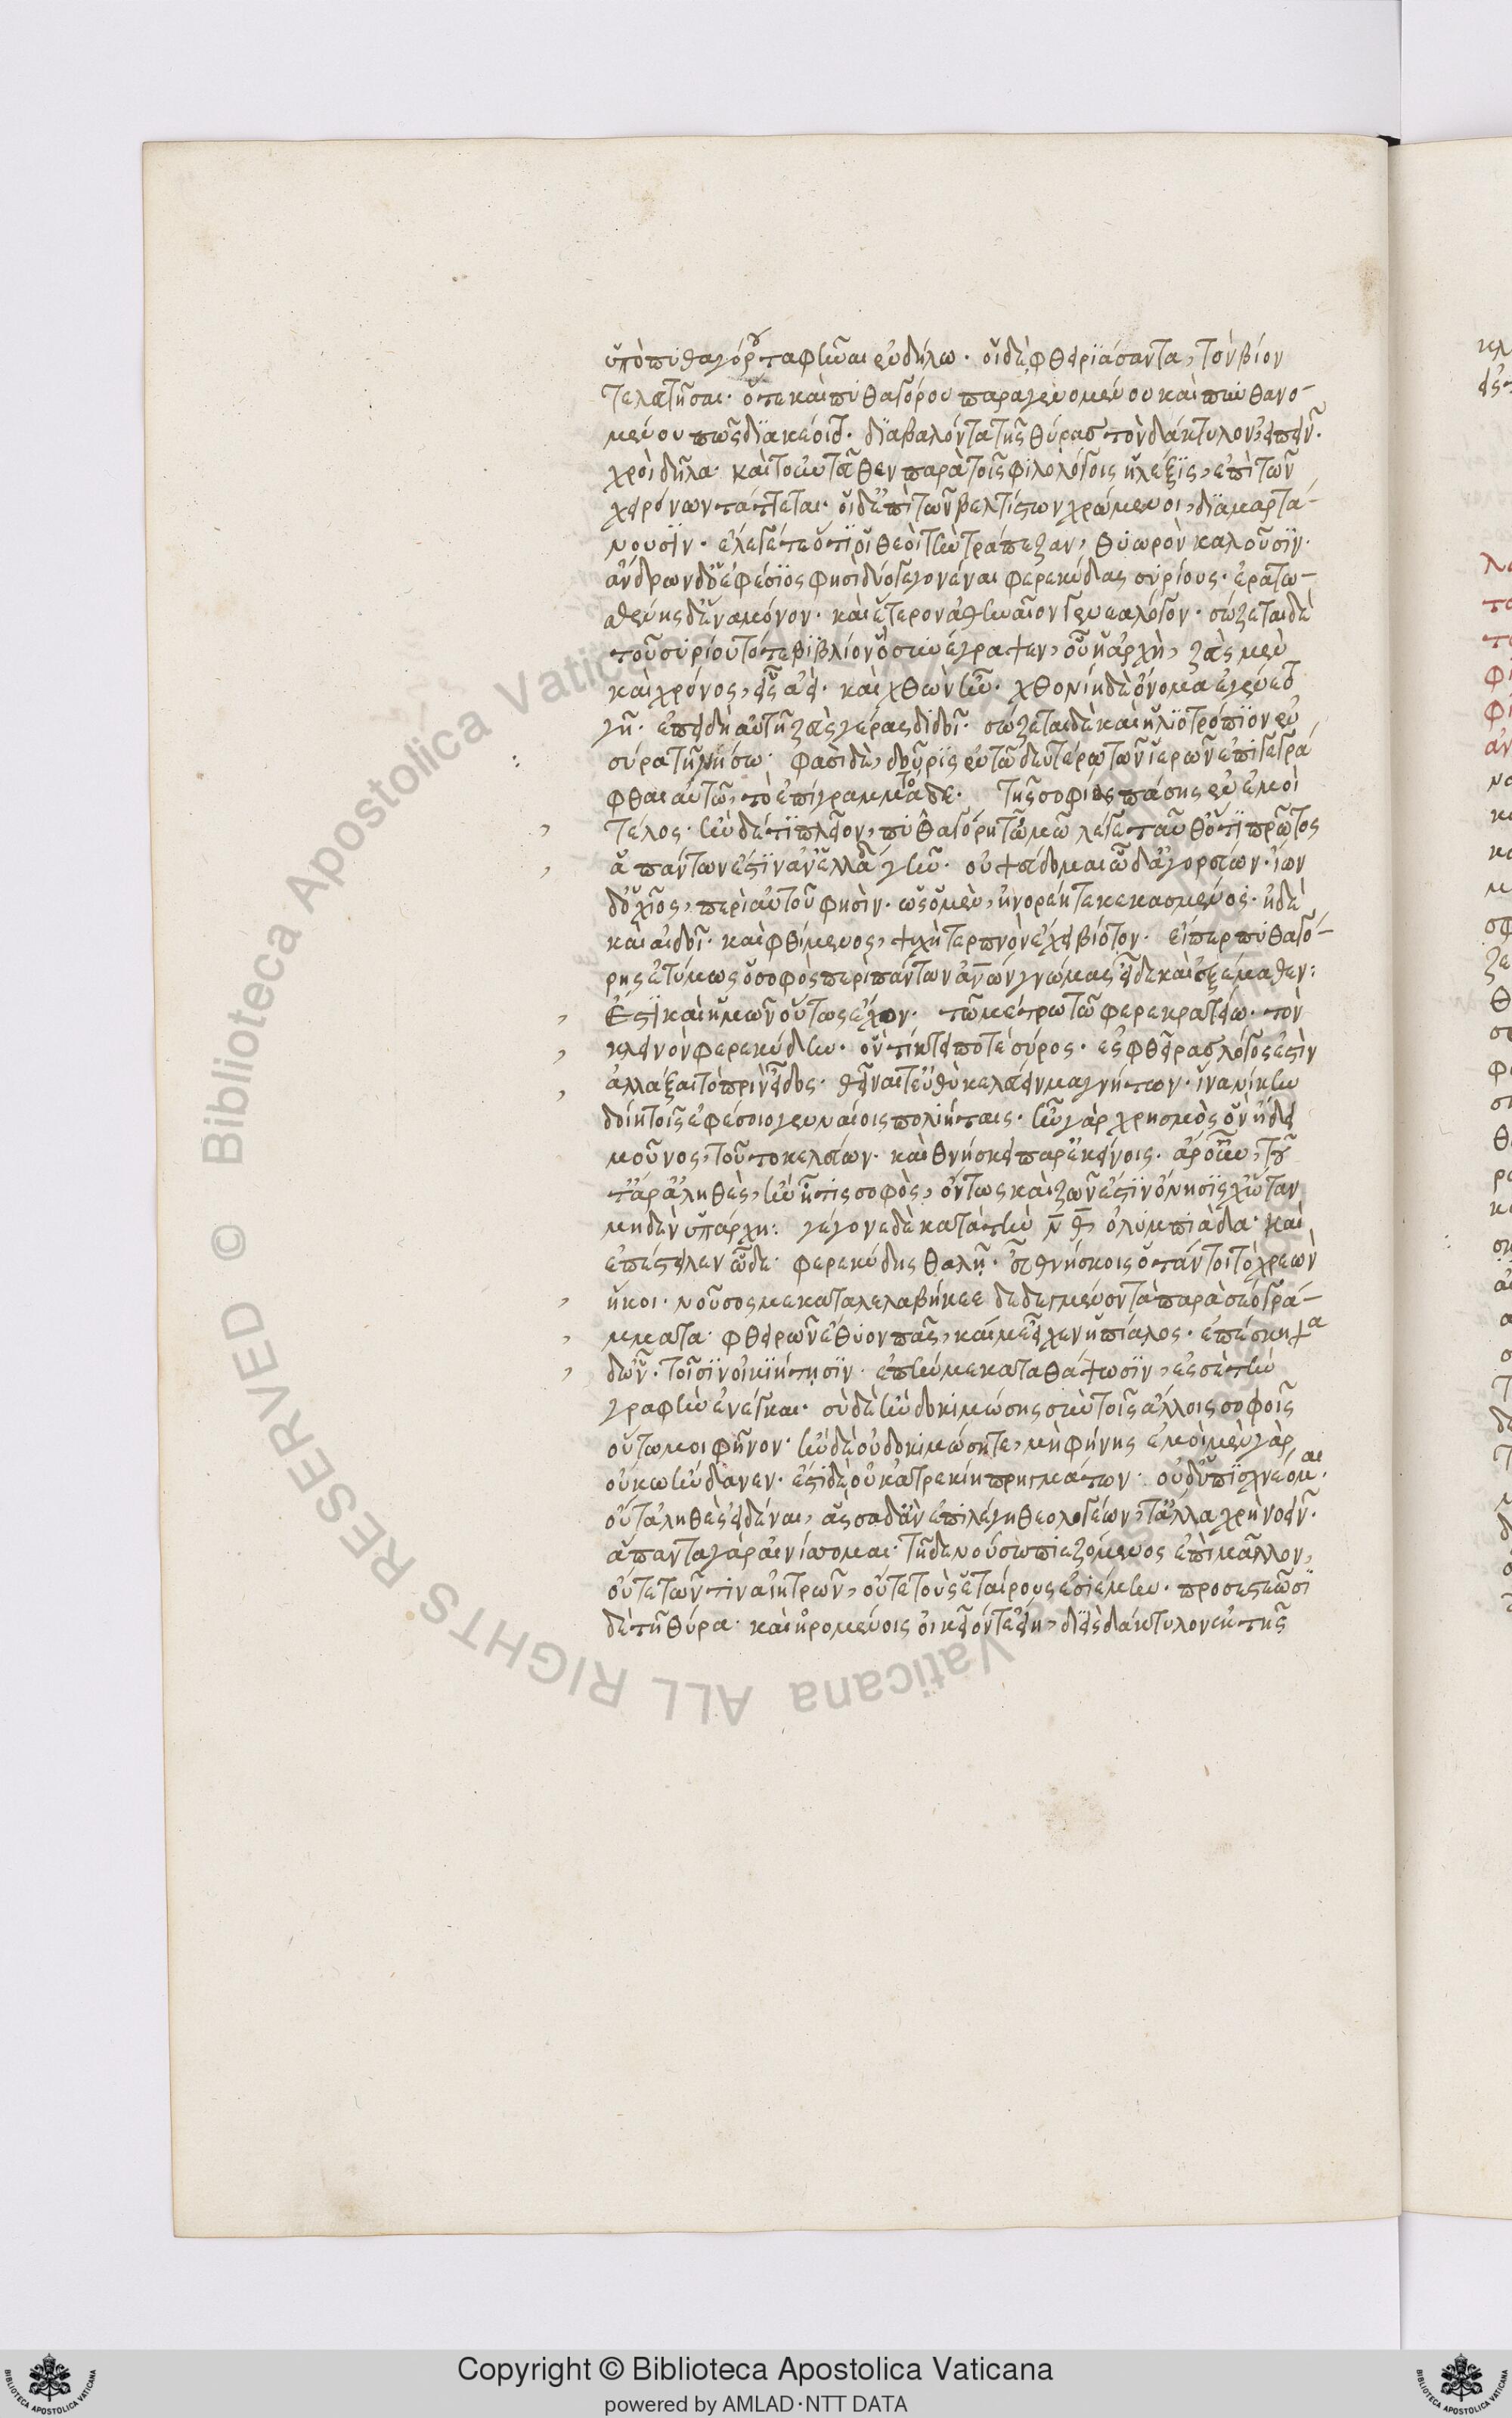 ὑπὸ πυθαγόρου ταφῆναι ἐν δήλω. οἱ δὲ φθειριάσαντα, τὸν βίον
τελευτῆσαι. ὅτε καὶ πυθαγόρου παραγενομένου καὶ πυνθανο-
μένου πῶς διακέοιτο. διαβαλόντα τῆς θύρας τὸν δάκτυλον, εἰπεῖν.
χροῒ δῆλα. καὶ τοὐντεῦθεν παρὰ τοῖς φιλολόγοις ἡ λέξις, ἐπὶ τῶν
χειρόνων τάττεται. οἱ δ' ἐπὶ τῶν βελτίστων χρώμενοι, διαμαρτά-
νουσιν. ἔλεγέ τε ὅτι οἱ θεοὶ τὴν τράπεζαν, θυωρὸν καλοῦσιν.
ἄνδρων δ' ὁ ἐφέσιος φησὶ δύο γεγονέναι φερεκύδας συρίους. ἐρατω-
σθένης δ' ἕνα μόνον. καὶ ἕτερον ἀθηναῖον γενεαλόγον. σώζεται δὲ
τοῦ συρίου τό τε βιβλίον ὃ συνέγραψεν, οὗ ἡ ἀρχὴ, ζὰς μὲν
καὶ χρόνος, εἰς ἀεὶ. καὶ χθὼν ἦν. χθονίη δὲ ὄνομα ἐγένετο
γῆ. ἐπειδὴ αὐτῆ ζὰς γέρας διδοῖ. σώζεται δὲ καὶ ἡλιοτρόπιον ἐν
σύρα τῆ νήσω. φασὶ δὲ, δοῦρις ἐν τῶ δευτέρω τῶν ἱερῶν ἐπιγεγρά
φθαι αὐτῶ, τὸ ἐπίγραμμα τόδε. τῆς σοφίης πάσης ἐν ἐμοὶ
τέλος. ἢν δέ τι πλεῖον, πυθαγόρη τῶμῶ λέγε ταῦθ' ὅτι πρῶτος
ἁπάντων ἐστὶν ἀν' ἑλλάδα γῆν. οὐ ψεύδομαι ὧδ' ἀγορεύων. ἴων
δ' ὁ χῖος, περὶ αὐτοῦ φησὶν. ὣς ὁ μὲν, ἠνορέη τε κεκασμένος. ἠδὲ
καὶ αἰδοῖ. καὶ φθίμενος, ψυχῆ τερπνὸν ἔχει βίοτον. εἴπερ πυθαγό-
ρης ἐτύμως ὁ σοφὸς περὶ πάντων ἀνθρώπων γνώμας εἶδε καὶ ἐξέμαθεν:
Ἔστι καὶ ἡμῶν οὕτως ἔχον. τῶ μέτρω τῶ φερεκρατείω. τὸν
κλεινὸν φερεκύδην. ὃν τίκτει ποτὲ σύρος. ἐς φθεῖρας λόγος ἐστὶν
ἀλλάξαι τὸ πρὶν εἶδος. θεῖναί τ' εὐθὺ κελεύειν μαγνήτων. ἵνα νίκην
δοίη τοῖς ἐφέσοιο γενναίοις πολιήταις. ἦν γὰρ χρησμὸς ὃν ἤδει
μοῦνος, τοῦτο κελεύων. καὶ θνήσκει παρ' ἐκείνοις. ἄρ' οὖν ἦν, τοῦ
τ' ἄρ' ἀληθὲς, ἢν ᾖ τις σοφὸς, ὄντως καὶ ζῶν ἐστὶν ὄνησις χὥταν
μηδὲν ὑπάρχη: γέγονε δὲ κατὰ τὴν ν̅θ̅ ὀλυμπιάδα. καὶ
ἐπέστειλεν ὧδε. φερεκύδης θαλῆ. εὖ θνήσκοις ὅταν τοι τὸ χρεὼν
ἥκοι. νοῦσος με καταλελάβηκεε δεδεγμένον τὰ παρὰ σέο γρά-
μματα. φθειρῶν ἔθυον πᾶς, καί με εἶχεν ἠπίαλος. ἐπέσκηψα
δ' ὦν. τοῖσιν οἰκιήτησιν. ἐπήν με καταθάψωσιν, ἐς σὲ τὴν
γραφὴν ἐνέγκαι. σὺ δὲ ἢν δοκιμώσης σὺν τοῖς ἄλλοις σοφοῖς
οὕτω μοι φῆνον. ἢν δὲ οὐ δοκιμώσητε, μὴ φήνης ἐμοὶ μὲν γὰρ
οὔκω ἥνδανεν. ἔστι δὲ οὐκ ἀτρεκίη πρηγμάτων. οὐδ' ὑπισχνέομαι.
οὐ τἀληθὲς εἰδέναι, ἅσσα δ' ἂν ἐπιλέγη θεολογέων, τἄλλα χρὴ νοεῖν.
ἅπαντα γὰρ αἰνίσσομαι. τῆ δὲ νούσω πιεζόμενος ἐπὶ μᾶλλον,
οὔτε τῶν τινα ἰητρῶν, οὔτε τοὺς ἑταίρους ἐσιέμην. προσεστεῶσι
δὲ τῆ θύρα. καὶ εἰρομένοις ὁκοῖόν τι εἴη, διεὶς δάκτυλον ἐκ τῆς
Copyright © Biblioteca Apostolica Vaticana
powered by AMLAD·NTT DATA